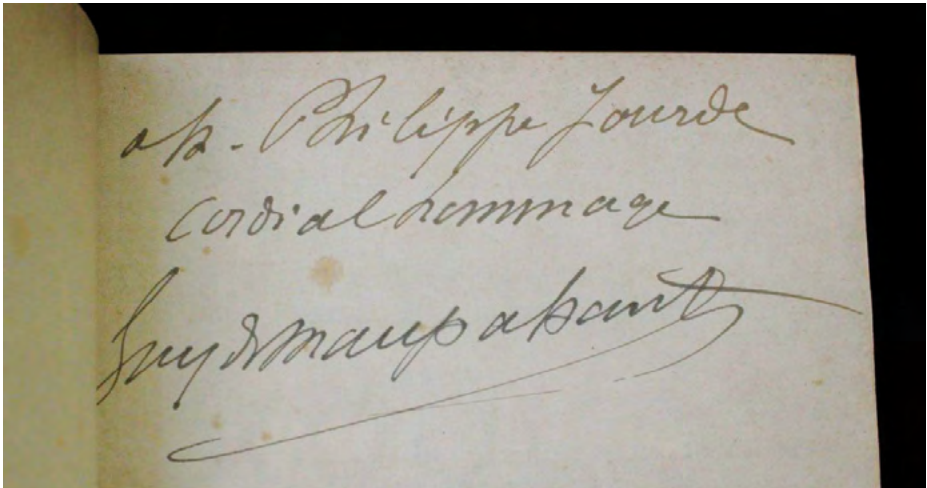 a M. Philippe Jourde
Cordial hommage
Guy de Maupassant